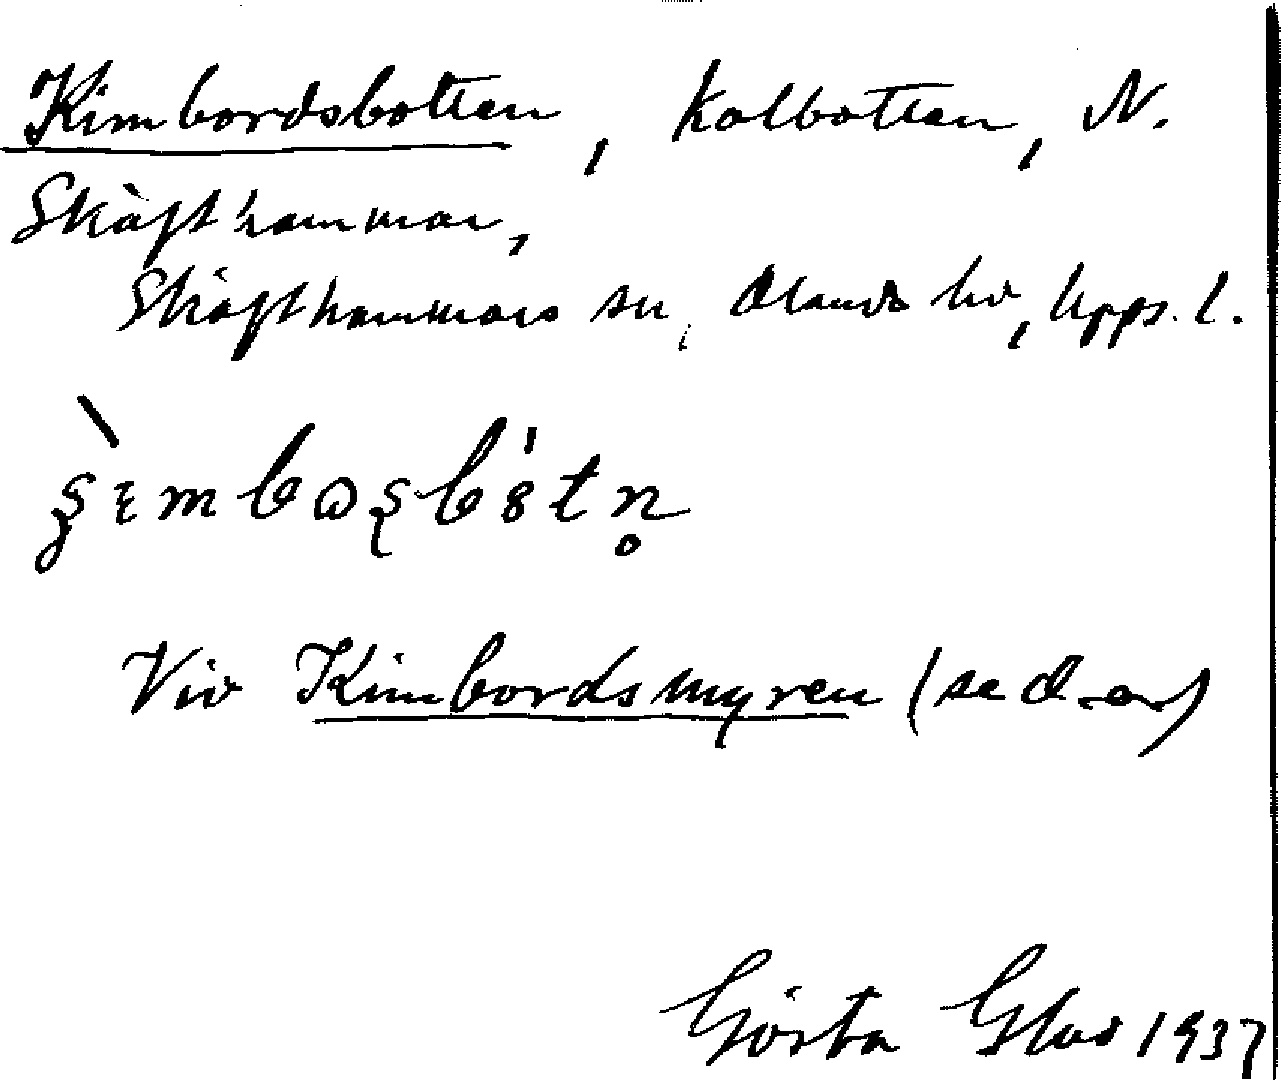 Kimbordsbotten, kolbotten, N.
Skäfthammar,
Skäfthammars sn, Olands hd, Upps. l.
Vid Kimbordsmyren (se d. o.)
Gösta 1937